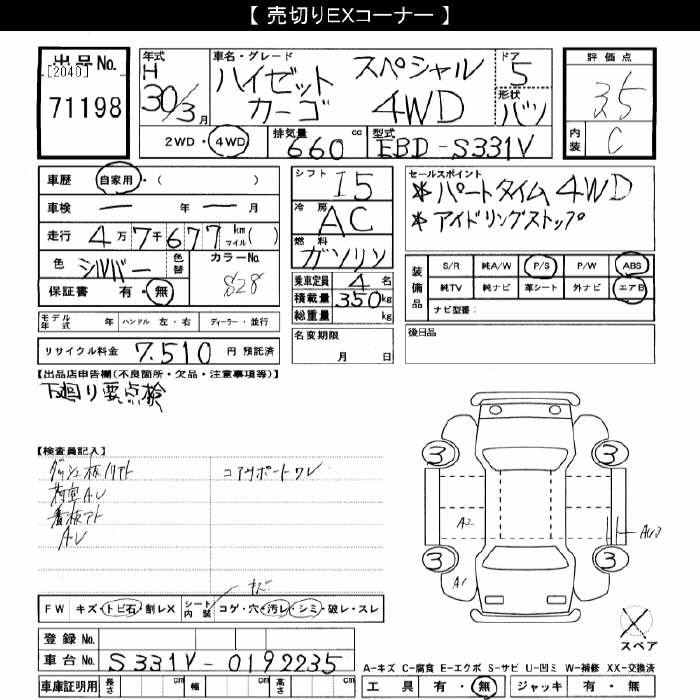 【 売切りEXコーナー 】
出品No.
[2040]
71198
年式
H 30/3月
車名・グレード
ハイゼット スペシャル
カーゴ 4WD
ドア
5
形状
バン
評価点
3.5
内装
C
2WD・4WD
排気量 cc
660
型式
EBD-S331V
車歴 自家用・( )
車検 ー 年 ー 月
走行 4万7千677km マイル( )
色 シルバー 色替
カラーNo.
S28
保証書 有・無
シフト
I5
冷房
AC
燃料
ガソリン
乗車定員 4名
積載量 350kg
総重量 kg
セールスポイント
*パートタイム4WD
*アイドリングストップ
装備品
S/R 純A/W P/S P/W ABS
純TV 純ナビ 革シート 外ナビ エアB
ナビ型番:
モデル年式 年 ハンドル 左・右 ディーラー・並行
リサイクル料金 7.510 円 預託済
名変期限
月 日
後日品
【出品店申告欄(不良箇所・欠品・注意事項等)】
下廻り要点検
【検査員記入】
コアサポートワレ
荷室AU
看板アト
AU
3 3
A2
3 3
A1
キズ
FW キズ・トビ石・割レX
シート内装 コゲ・穴・汚レ・シミ・破レ・スレ
スペア
登録No.
車台No. S331V-0192235
A-キズ C-腐食 E-エクボ S-サビ U-凹ミ W-補修 XX-交換済
車庫証明用 長さ cm 幅 cm 高さ cm
工具 有・無 ジャッキ 有・無